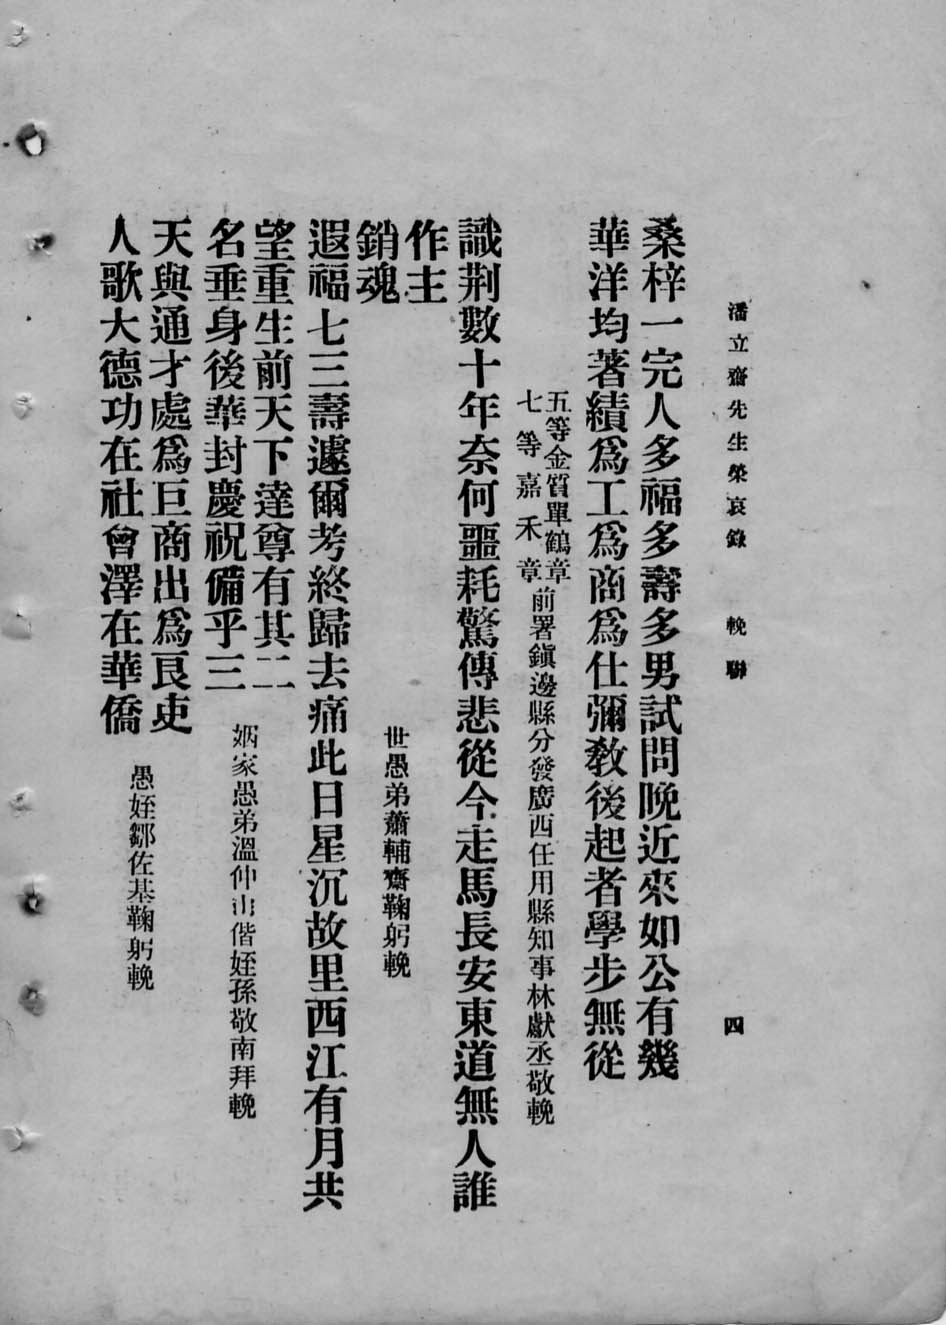 潘立齋先生榮哀錄　輓聯　四
桑梓一完人多福多壽多男試問晚近來如公有幾
華洋均著績爲工爲商爲仕彌教後起者學步無從
五等金質單鶴章
七等嘉禾章
前署鎭邊縣分發廣西任用縣知事林獻丞敬輓
識荆數十年奈何噩耗驚傳悲從今走馬長安東道無人誰
作主
銷魂
世愚弟蕭輔齋鞠躬輓
遐福七三壽遽爾考終歸去痛此日星沉故里西江有月共
望重生前天下達尊有其二
名垂身後華封慶祝備乎三
姻家愚弟溫仲山偕姪孫敬南拜輓
天與通才處爲巨商出爲良吏
人歌大德功在社會澤在華僑
愚姪鄒佐基鞠躬輓